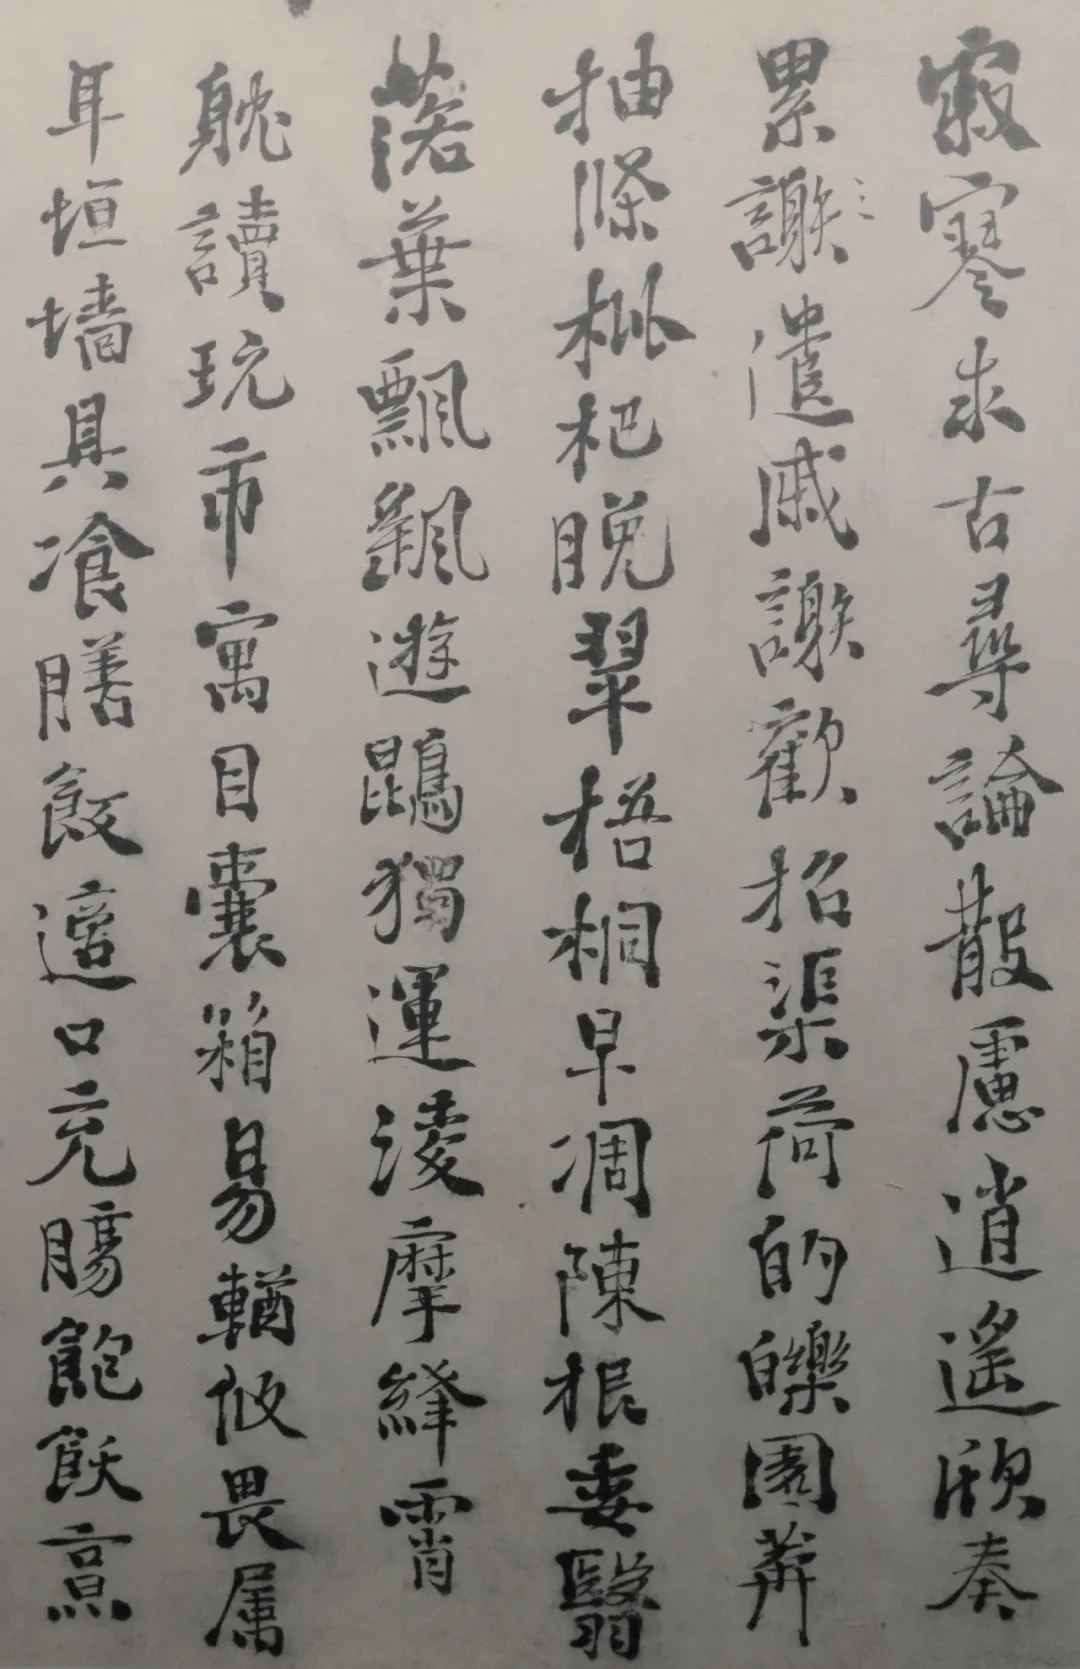 寂寥求古尋論散慮逍遥欣奏
累謝遣戚謝歡招渠荷的皪園莽
抽條枇杷晚翠梧桐早凋陳根委翳
落葉飄颻遊鵾獨運淩摩絳霄
躭讀玩市寓目囊箱易輶攸畏属
耳垣墙具飡膳飯適口充腸飽飫烹